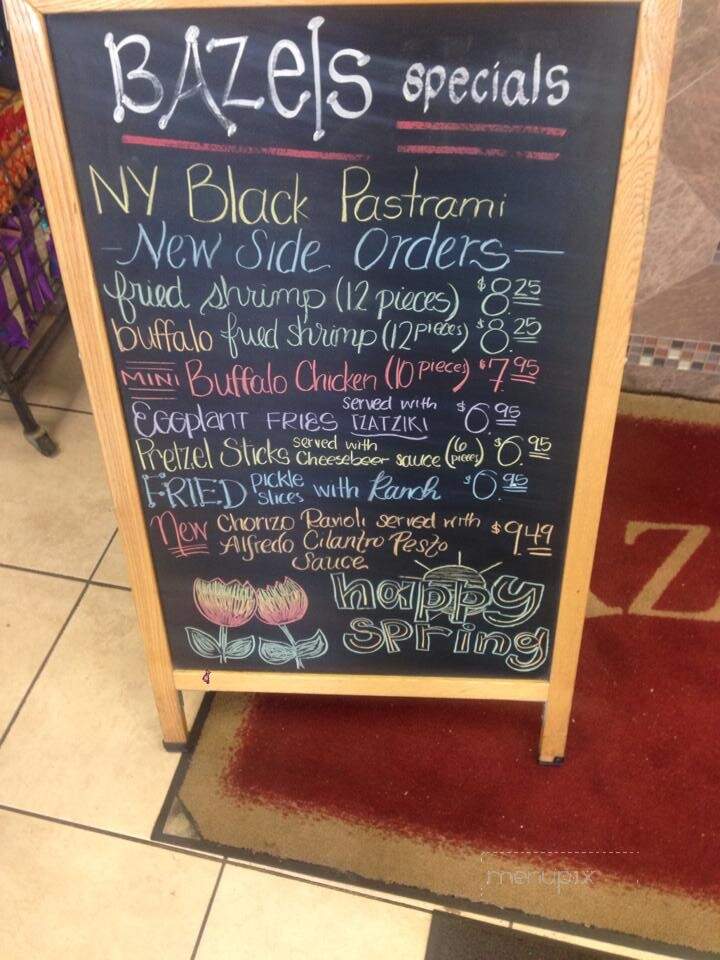 BAZels specials
NY Black Pastrami
-New Side Orders-
fried shrimp (12 pieces) $8.25
buffalo fried shrimp (12 pieces) $8.25
MINI Buffalo Chicken (10 pieces) $7.95
Eggplant FRIES served with TZATZIKI $6.95
Pretzel Sticks served with Cheesebeer sauce (6 pieces) $6.95
FRIED pickle slices with Ranch $6.95
New Chorizo Ravioli served with $9.49
Alfredo Cilantro Pesto
Sauce
happy
spring
AZ
menupix